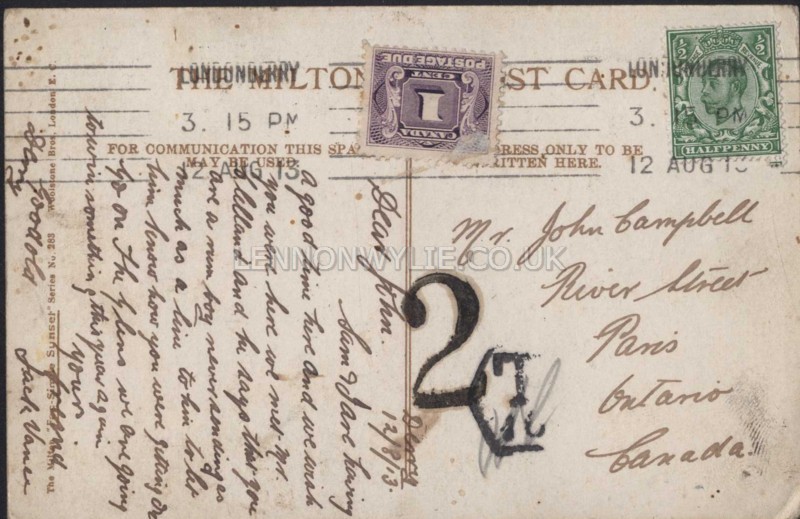 THE MILTON POST CARD.
LONDONDERRY
3. 15 PM
12 AUG 13
LONDONDERRY
3. 15 PM
12 AUG 13
FOR COMMUNICATION THIS SPA
MAY BE USED
RESS ONLY TO BE
WRITTEN HERE.
POSTAGE DUE
CENT
1
CANADA
½ ½
HALFPENNY
Mr. John Campbell
River Street
Paris
Ontario
Canada.
2
T
Derry
12/8/13.
Dear John.
Sam & I are having
a good time here and we wish
you were here we met Mr.
Lelland and he says that you
are a rum boy never sending as
much as a line to him to let
him know how you were getting on
Go on the Glens we are going
to win something this year again
your friend
Jack Vance
good old
Derry
Series No. 283 Woolstone Bros., London E. C.
LENNONWYLIE.CO.UK